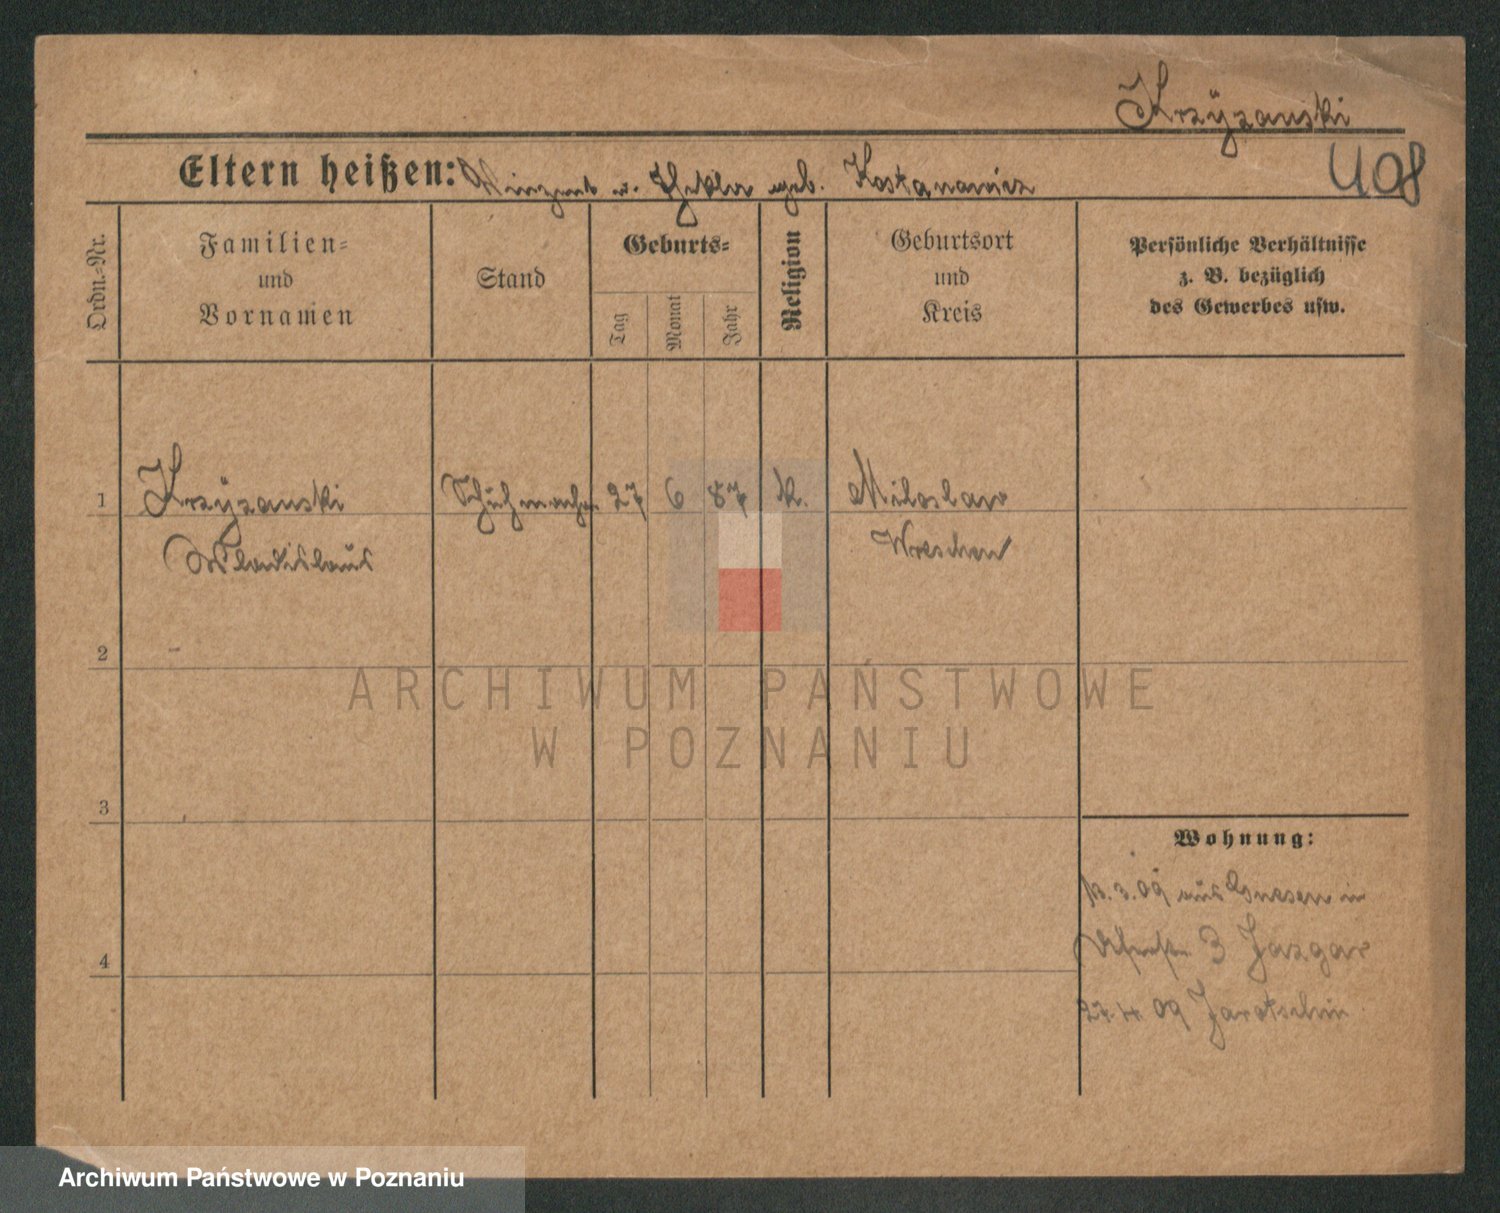 Krzÿzanski
408
Eltern heißen: Vinzent u. Thekla geb.
Ordn.-Nr.
Familien-
und
Vornamen
Stand
Geburts-
Tag
Monat
Jahr
Religion
Geburtsort
und
Kreis
Persönliche Verhältnisse
z. B. bezüglich
des Gewerbes usw.
1 Krzÿzanski Schuhmacher 27 6 87 k. Miloslaw
Wladislaus Wreschen
2
ARCHIWUM PAŃSTWOWE
W POZNANIU
3
Wohnung:
3.09 aus Gnesen in
3
4
27.4.09 Jarotschin
Archiwum Państwowe w Poznaniu